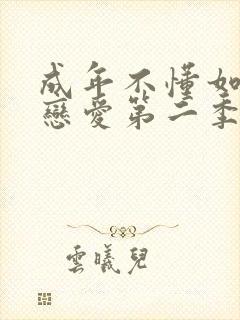 成年不懂如
戀愛第二季
雲曦兒